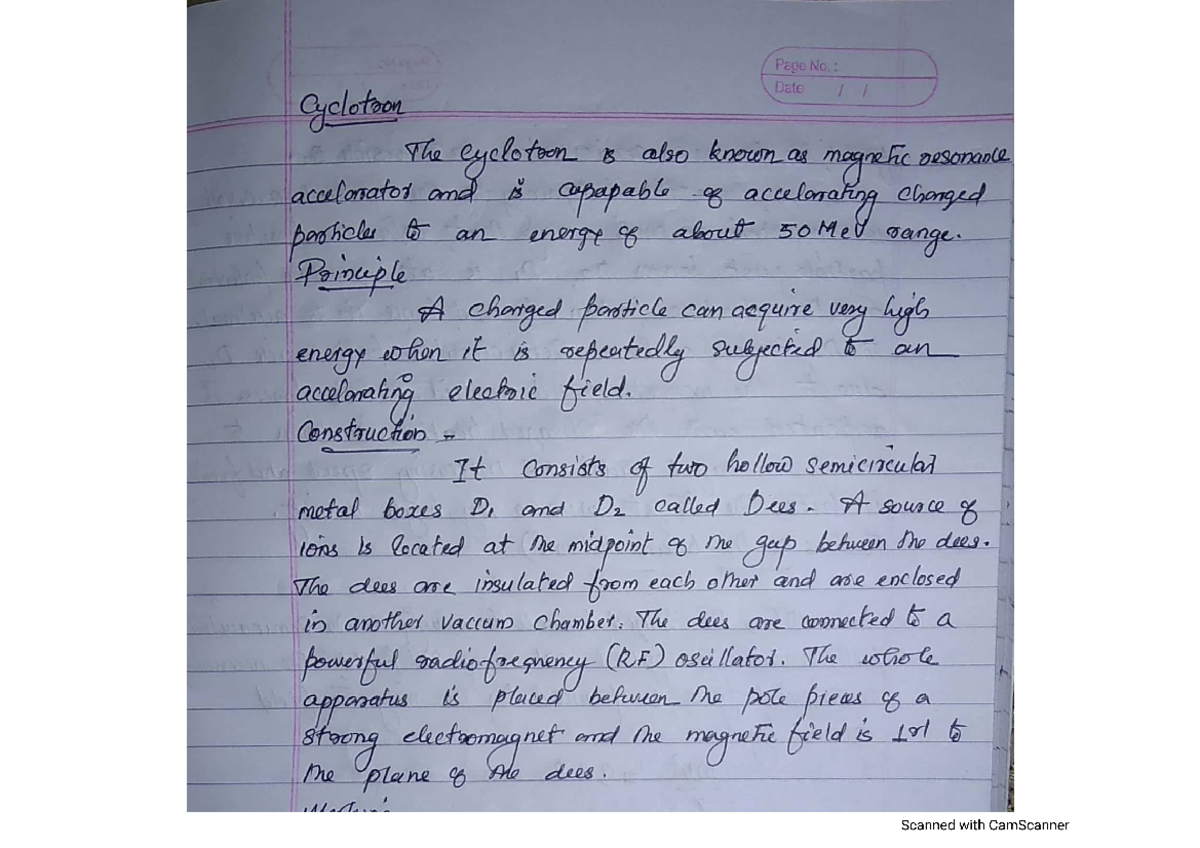 Page No. :
Date / /
Cyclotron
The cyclotron is also known as magnetic resonance
accelarrator and is capapable of accelarrating charged
particles to an energy of about 50 MeV range.
Principle
A charged particle can acquire very high
energy when it is repeatedly subjected to an
accelarrating electric field.
Construction -
It consists of two hollow semicircular
metal boxes D1 and D2 called Dees. A source of
ions is located at the midpoint of the gap between the dees.
The dees are insulated from each other and are enclosed
in another vaccum chamber. The dees are connected to a
powerful radiofrequency (R.F) oscillator. The whole
apparatus is placed between the pole pieces of a
strong electromagnet and the magnetic field is ⊥rl to
the plane of the dees.
Scanned with CamScanner